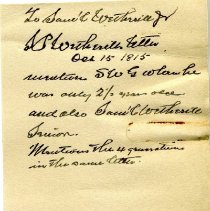 To Sam'l Wetherill Jr
S P Wetherill's Letter
Oct 15 1815
mentions S W G when he
was only 2½ years old
and also Sam'l Wetherill
Senior.
Mentions the 4 generations
in the same letter.